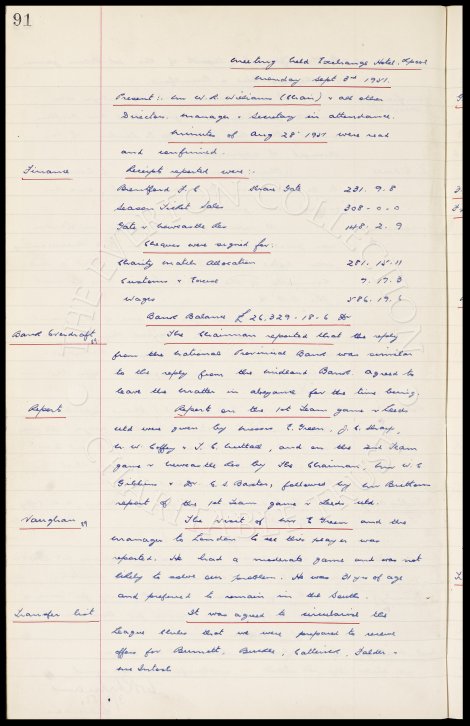 91
Meeting held Exchange Hotel. L'pool
Monday Sept 3rd 1951.
Present:. Mr W. R. Williams (Chair) & all other
Directors. Manager & Secretary in attendance.
Minutes of Aug 28th 1951 were read
and confirmed.
Finance
Receipts reported were:.
Brentford F.C. Share Gate 231. 9. 8
Season Ticket Sales 308 - 0. 0
Gate v Newcastle Res 148. 2. 9
Cheques were signed for:
Charity Match Allocation 281. 15. 11
Customs & Excise 9. 17. 3
Wages 586. 19. 6
Bank Balance £ 26,329 - 18. 6 Dr
Bank Overdraft
The Chairman reported that the reply
from the National Provincial Bank was similar
to the reply from the Midland Bank. Agreed to
leave the matter in abeyance for the time being.
Reports
Report on the 1st Team game v Leeds
Utd were given by Messrs E. Green, J. C. Sharp,
W. W. Coffey & T. E. Nuttall, and on the 2nd Team
game v Newcastle Res by the Chairman, Mr W. C
Gibbins & Dr C. S. Baxter, followed by Mr Britton's
report of the 1st Team game v Leeds Utd.
Vaughan
The visit of Mr E Green and the
Manager to London to see this player was
reported. He had a moderate game and was not
likely to solve our problem. He was 31 yrs of age
and preferred to remain in the South.
Transfer list
It was agreed to circularise the
League Clubs that we were prepared to receive
offers for Burnett, Buckle, Catterick, Falder &
McIntosh
THE EVERTON COLLECTION